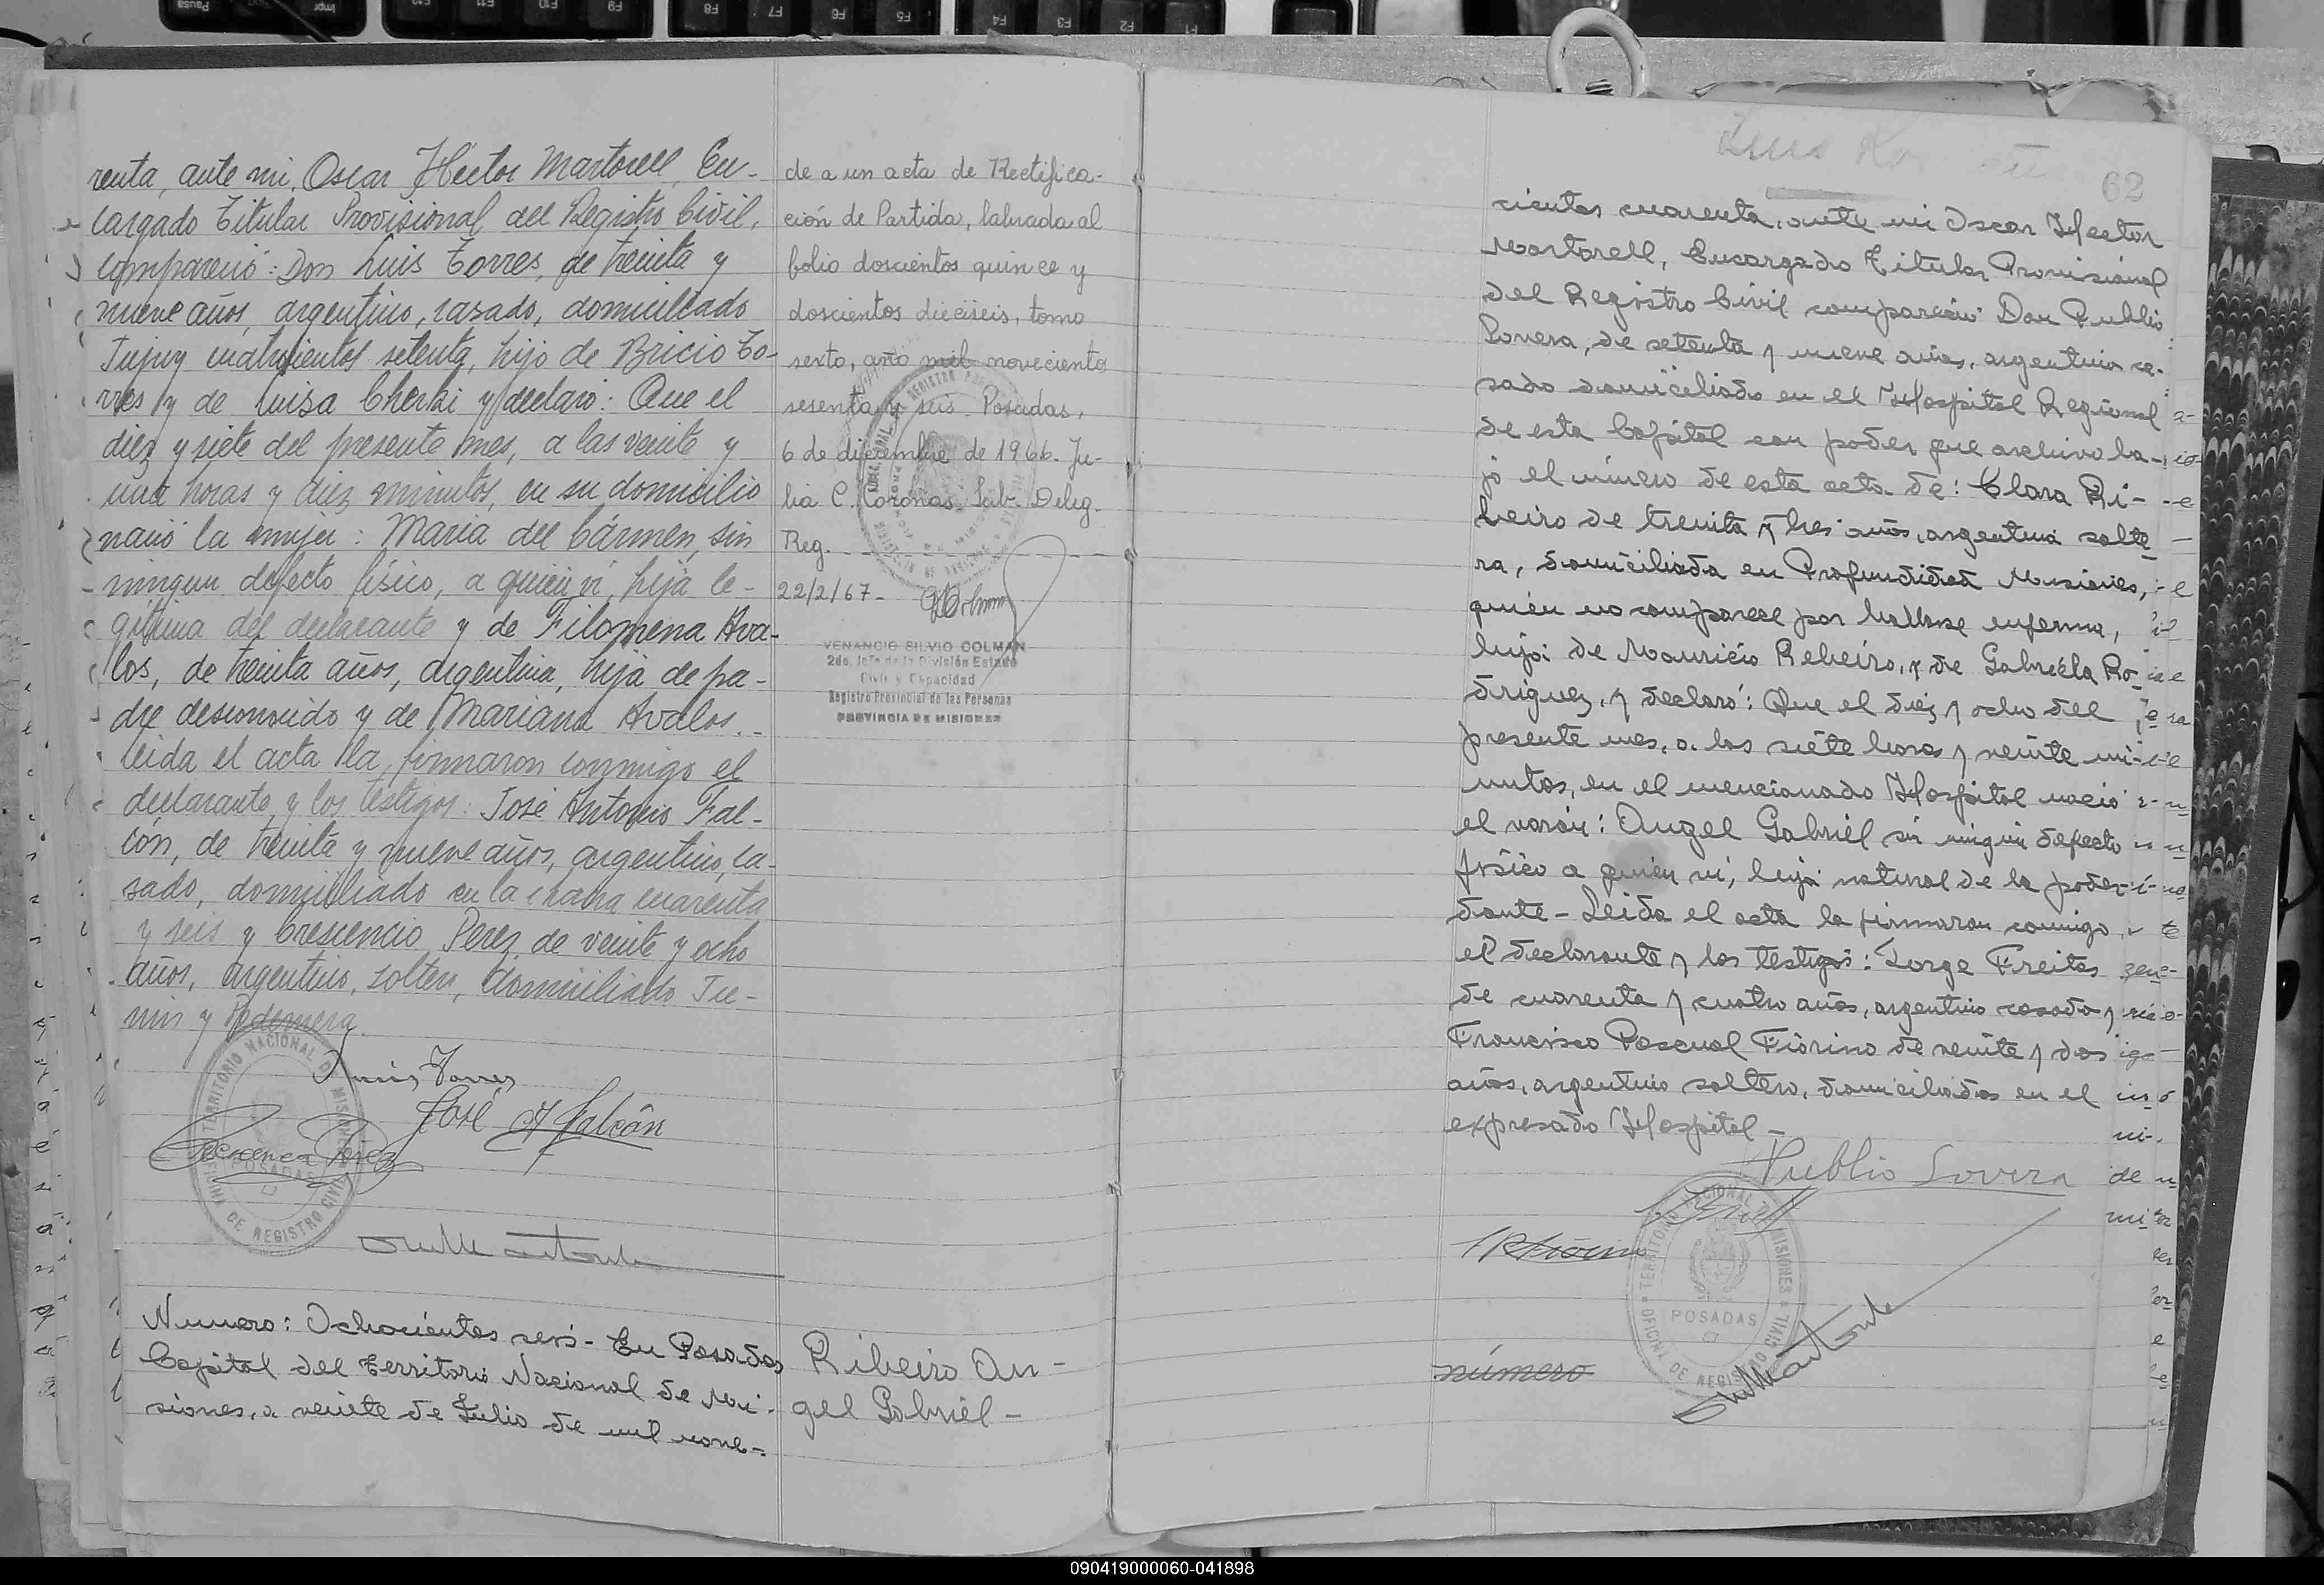 renta, ante mi, Oscar Hector Martorell, En-
cargado Titular Provisional del Registro Civil,
compareció: Don Luis Torres, de treinta y
nueve años, argentino, casado, domiciliado
Jujuy cuatrocientos setenta, hijo de Bricio To-
rres y de Luisa Cherki y declaró: Que el
diez y siete del presente mes, a las veinte y
una horas y diez minutos, en su domicilio
nació la mujer: Maria del Cármen, sin
ningun defecto físico, a quien vi, hija le-
gitima del declarante y de Filomena Ava-
los, de treinta años, argentina, hija de pa-
dre desconocido y de Mariana Avalos.-
Leida el acta la firmaron conmigo el
declarante y los testigos: José Antonio Fal-
cón, de treinta y nueve años, argentino, ca-
sado, domiciliado en la chacra cuarenta
y seis y Crescencio Perez, de veinte y ocho
años, argentino, soltero, domiciliado Ju-
nin y Pedernera.
Luis Torres
José A Falcón
Crecencio Pérez
TERRITORIO NACIONAL DE MISIONES
POSADAS
OFICINA DE REGISTRO CIVIL
Numero: Ochocientos seis- En Posadas
Capital del Territorio Nacional de Mi-
siones, a veinte de Julio de mil nove-
de a un acta de Rectifica-
ción de Partida, labrada al
folio doscientos quince y
doscientos dieciseis, tomo
sexto, año mil novecientos
sesenta y seis. Posadas,
6 de diciembre de 1966. Ju-
lia C. Coronas. Sub. Deleg.
Reg.
22/2/67-
VENANCIO SILVIO COLMAN
2do. Jefe de la División Estado
Civil y Capacidad
Registro Provincial de las Personas
PROVINCIA DE MISIONES
Ribeiro An-
gel Gabriel-
62
cientos cuarenta, ante mi Oscar Hector
Martorell, Encargado Titular Provisional
del Registro Civil compareció: Don Publio
Lovera, de setenta y nueve años, argentino ca-
sado domiciliado en el Hospital Regional
de esta Capital con poder que archivo ba-
jo el número de esta acta de: Clara Ri-
beiro de treinta y tres años, argentina solte-
ra, domiciliada en Profundidad Misiones,
quien no comparece por hallarse enferma,
hija: de Mauricio Rebeiro, y de Gabriela Ro-
driguez, y declaró: Que el diez y ocho del
presente mes, a las siete horas y veinte mi-
nutos, en el mencionado Hospital nació
el varón: Angel Gabriel sin ningún defecto
físico a quien vi, hijo natural de la poder-
dante- Leida el acta la firmaron conmigo
el declarante y los testigos: Jorge Freites
de cuarenta y cuatro años, argentino casado y
Francisco Pascual Fiorino de veinte y dos
años, argentino soltero, domiciliados en el
expresado Hospital-
Publio Lovera
TERRITORIO NACIONAL DE MISIONES
POSADAS
OFICINA DE REGISTRO CIVIL
número
090419000060-041898